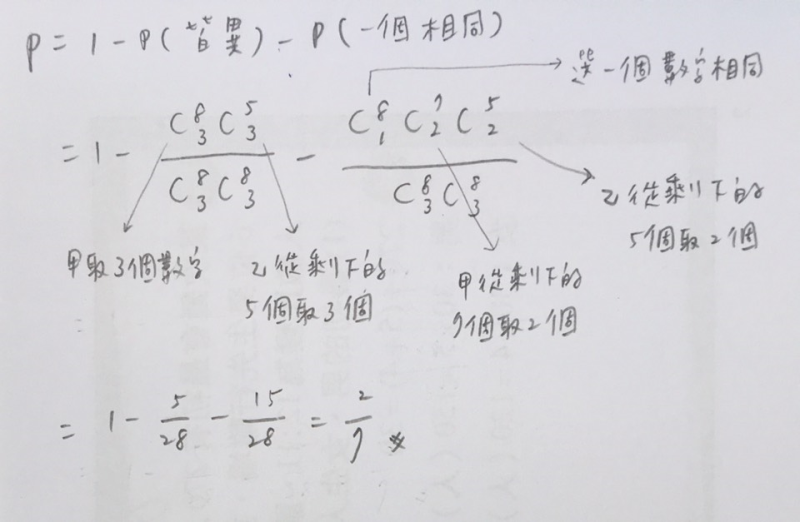 P = 1 - P(皆異) - P(一個相同)
選一個數字相同
= 1 - \frac{C^8_3 C^5_3}{C^8_3 C^8_3} - \frac{C^8_1 C^7_2 C^5_2}{C^8_3 C^8_3}
甲取3個數字
乙從剩下的
5個取3個
甲從剩下的
7個取2個
乙從剩下的
5個取2個
= 1 - \frac{5}{28} - \frac{15}{28} = \frac{2}{7}